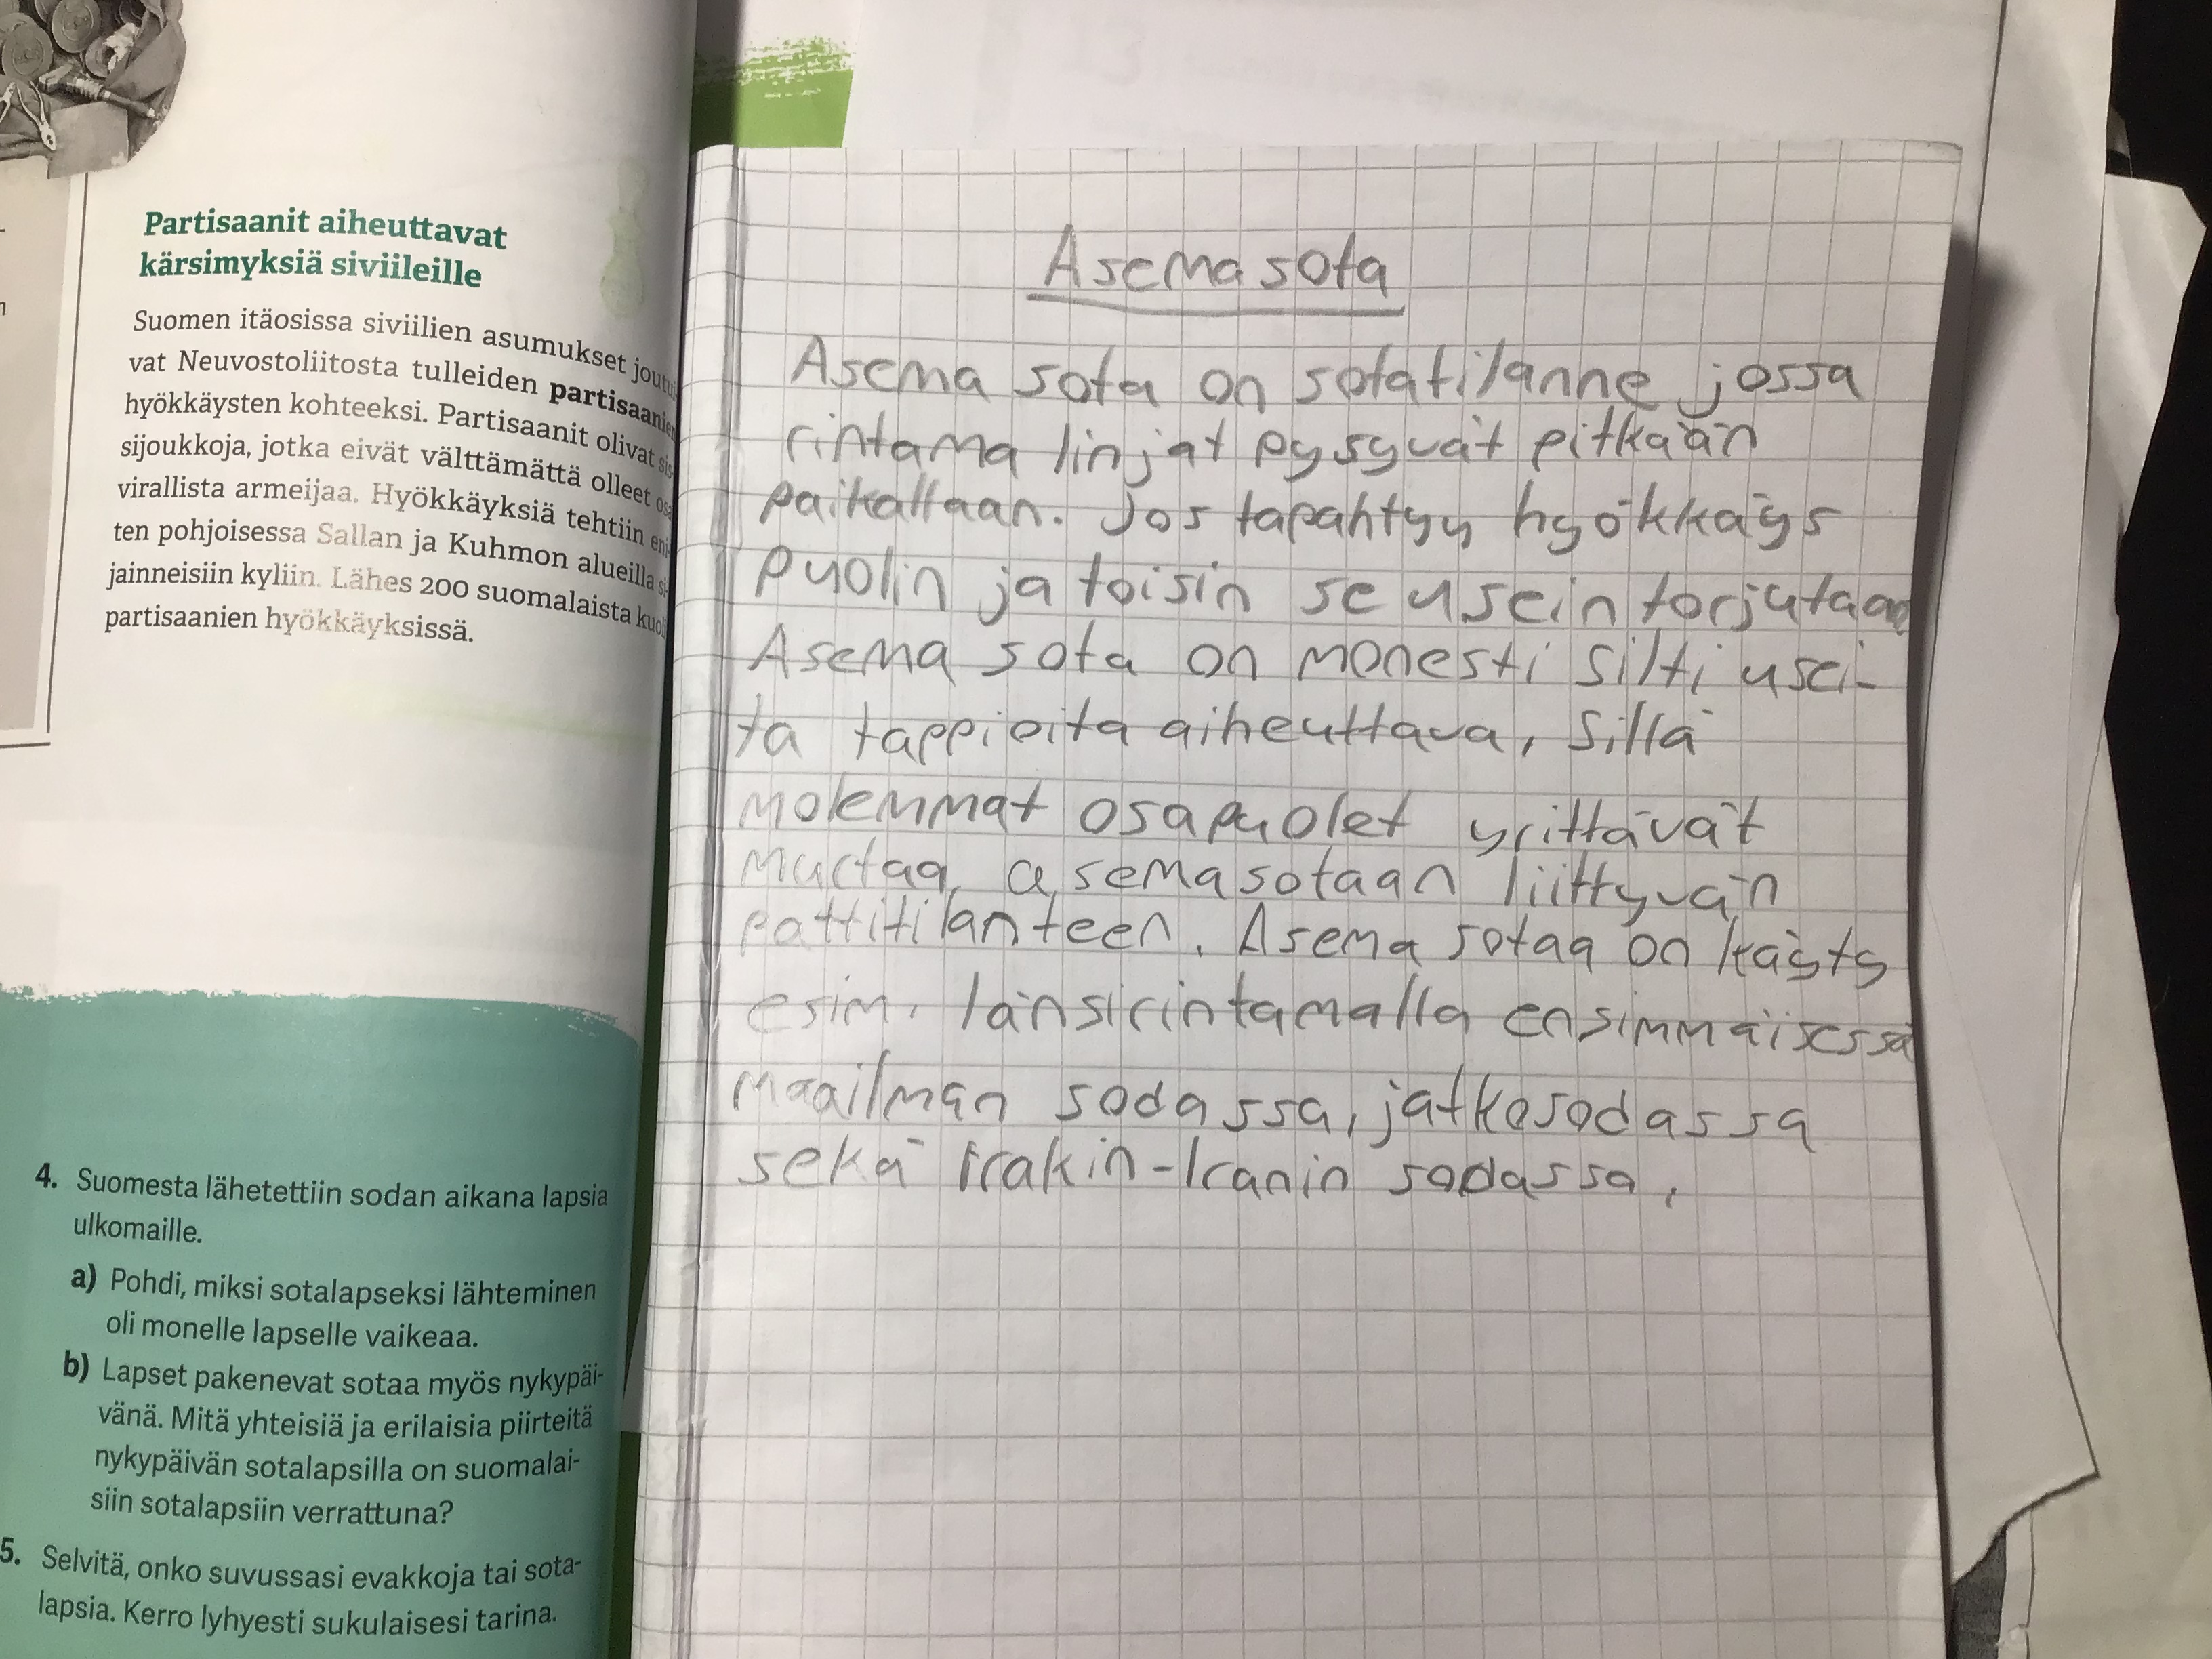 Partisaanit aiheuttavat
kärsimyksiä siviileille
Suomen itäosissa siviilien asumukset joutu
vat Neuvostoliitosta tulleiden partisaanien
hyökkäysten kohteeksi. Partisaanit olivat sis
sijoukkoja, jotka eivät välttämättä olleet osa
virallista armeijaa. Hyökkäyksiä tehtiin eni
ten pohjoisessa Sallan ja Kuhmon alueilla si
jainneisiin kyliin. Lähes 200 suomalaista kuoli
partisaanien hyökkäyksissä.
4. Suomesta lähetettiin sodan aikana lapsia
ulkomaille.
a) Pohdi, miksi sotalapseksi lähteminen
oli monelle lapselle vaikeaa.
b) Lapset pakenevat sotaa myös nykypäi-
vänä. Mitä yhteisiä ja erilaisia piirteitä
nykypäivän sotalapsilla on suomalai-
siin sotalapsiin verrattuna?
5. Selvitä, onko suvussasi evakkoja tai sota-
lapsia. Kerro lyhyesti sukulaisesi tarina.
Asemasota
Asema sota on sotatilanne jossa
rintama linjat pysyvät pitkään
paikallaan. Jos tapahtyy hyökkäys
puolin ja toisin se usein torjutaan
Asema sota on monesti silti usei-
ta tappioita aiheuttava, sillä
molemmat osapuolet yrittävät
murtaa asemasotaan liittyvän
pattitilanteen. Asema sotaa on käyty
esim. länsirintamalla ensimmäisessä
maailman sodassa, jatkosodassa
sekä Irakin-Iranin sodassa.